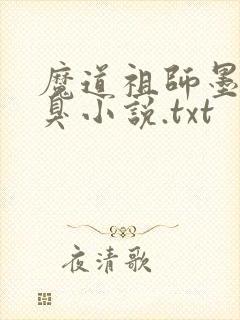 魔道祖師墨
臭小説.txt
夜清歌